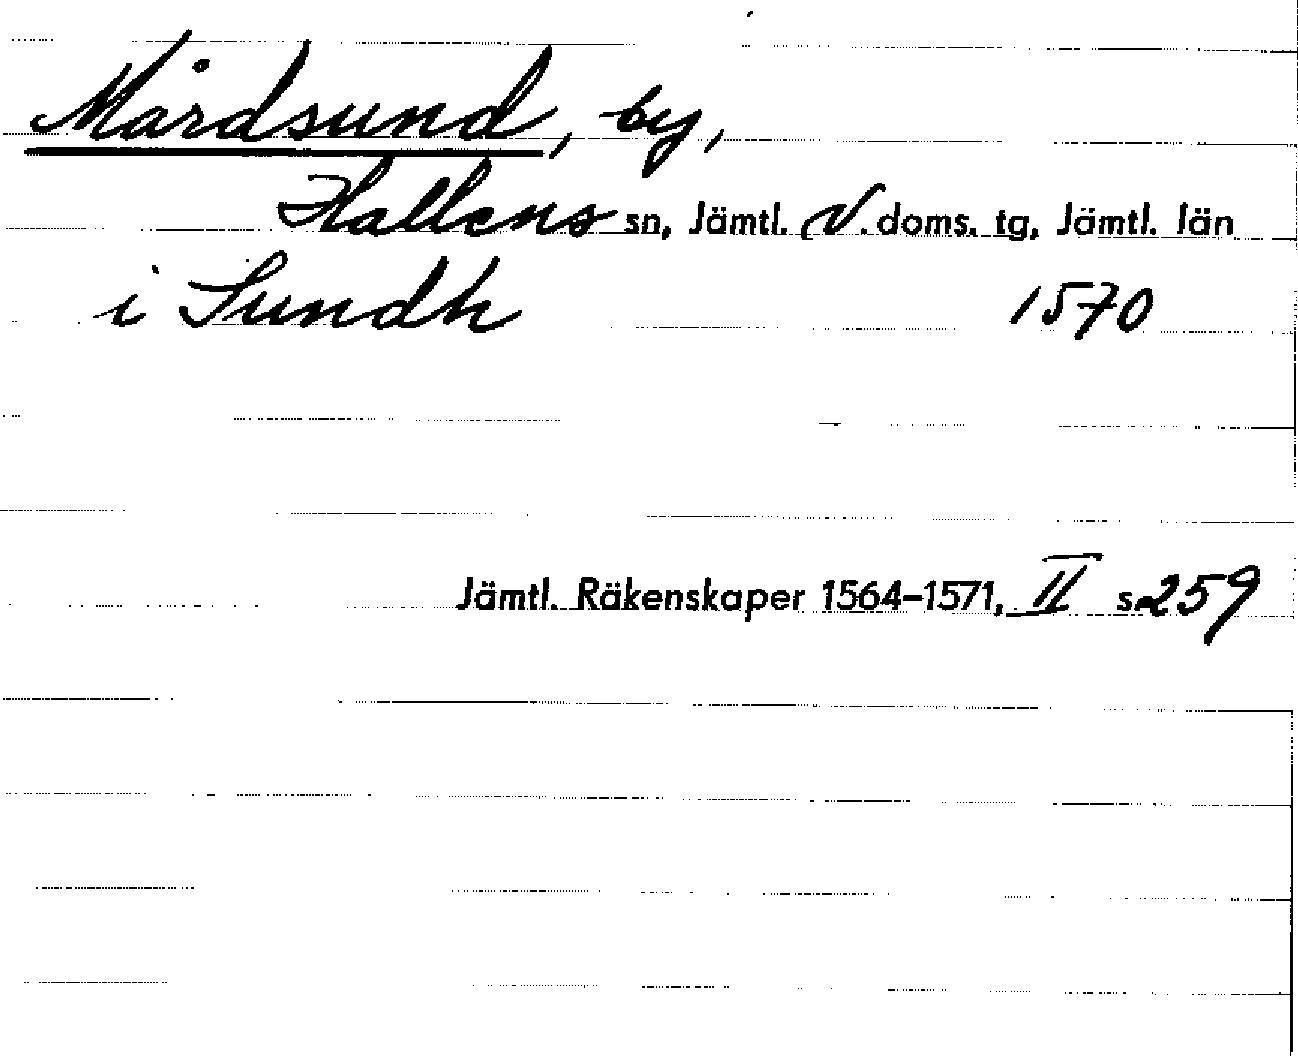 Mårdsund, by,
Hallens sn, Jämtl. V. doms. tg, Jämtl. län
i Sundh 1570
Jämtl. Räkenskaper 1564–1571, II s. 259